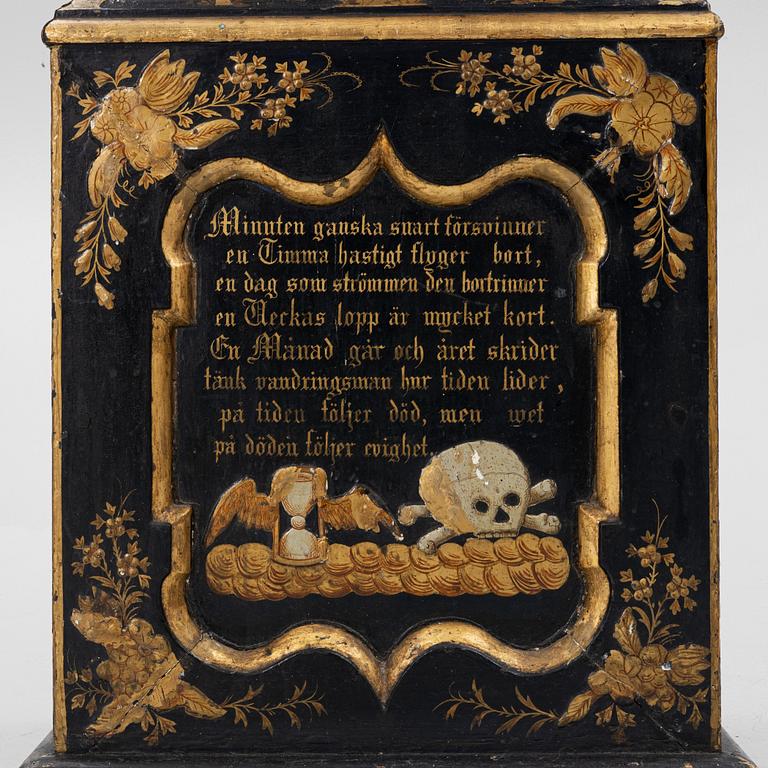 Minuten ganska snart försvinner
en Timma hastigt flyger bort,
en dag som strömmen den bortrinner
en Veckas lopp är mycket kort.
En Månad går och året skrider
tänk vandringsman hur tiden lider,
på tiden följer död, men wet
på döden följer evighet.